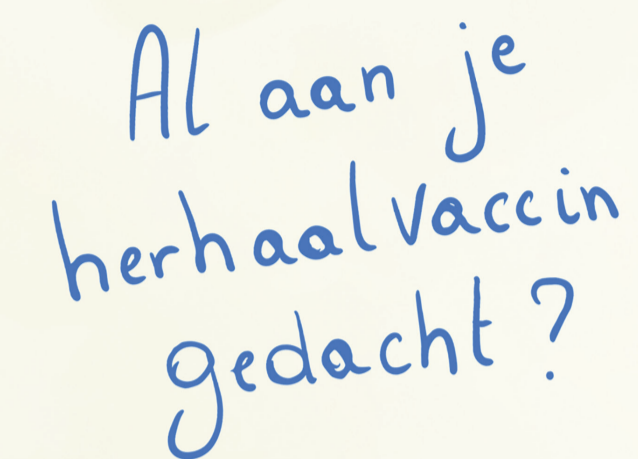 Al aan je
herhaalvaccin
gedacht?